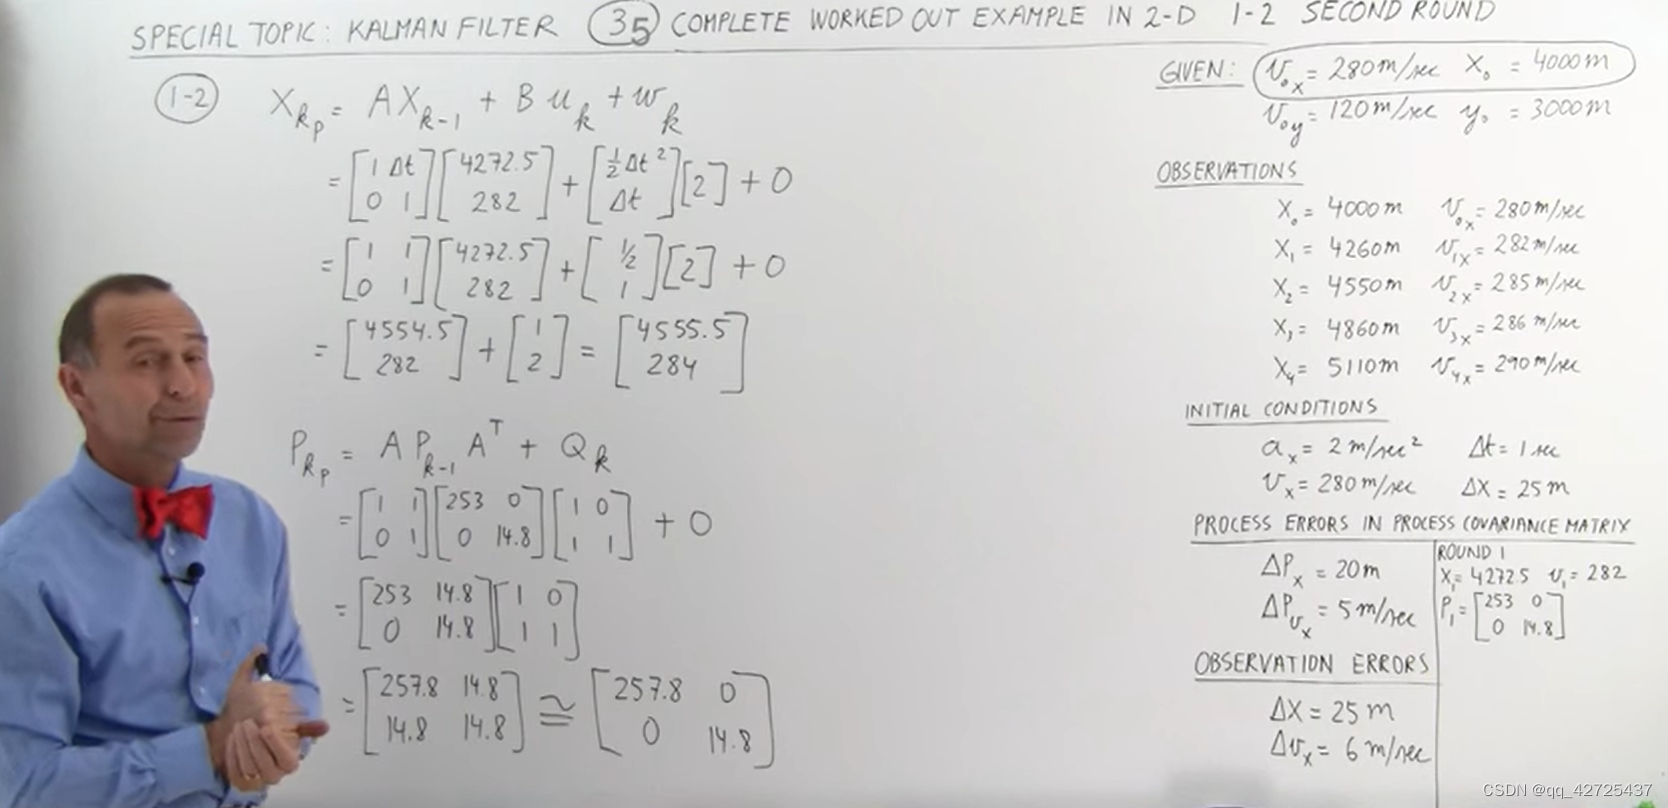 SPECIAL TOPIC: KALMAN FILTER (35) COMPLETE WORKED OUT EXAMPLE IN 2-D 1-2 SECOND ROUND
(1-2) X_kp = A X_k-1 + B u_k + w_k
= [1 Δt; 0 1] [4272.5; 282] + [½Δt²; Δt] [2] + 0
= [1 1; 0 1] [4272.5; 282] + [½; 1] [2] + 0
= [4554.5; 282] + [1; 2] = [4555.5; 284]
P_kp = A P_k-1 A^T + Q_k
= [1 1; 0 1] [253 0; 0 14.8] [1 0; 1 1] + 0
= [253 14.8; 0 14.8] [1 0; 1 1]
= [257.8 14.8; 14.8 14.8] ≅ [257.8 0; 0 14.8]
GIVEN: v_ox = 280 m/sec X_o = 4000 m
v_oy = 120 m/sec y_o = 3000 m
OBSERVATIONS
X_o = 4000 m v_ox = 280 m/sec
X_1 = 4260 m v_1x = 282 m/sec
X_2 = 4550 m v_2x = 285 m/sec
X_3 = 4860 m v_3x = 286 m/sec
X_4 = 5110 m v_4x = 290 m/sec
INITIAL CONDITIONS
a_x = 2 m/sec² Δt = 1 sec
v_x = 280 m/sec ΔX = 25 m
PROCESS ERRORS IN PROCESS COVARIANCE MATRIX
ΔP_x = 20 m
ΔP_vx = 5 m/sec
ROUND 1
X_1 = 4272.5 v_1 = 282
P_1 = [253 0; 0 14.8]
OBSERVATION ERRORS
ΔX = 25 m
Δv_x = 6 m/sec
CSDN @qq_42725437